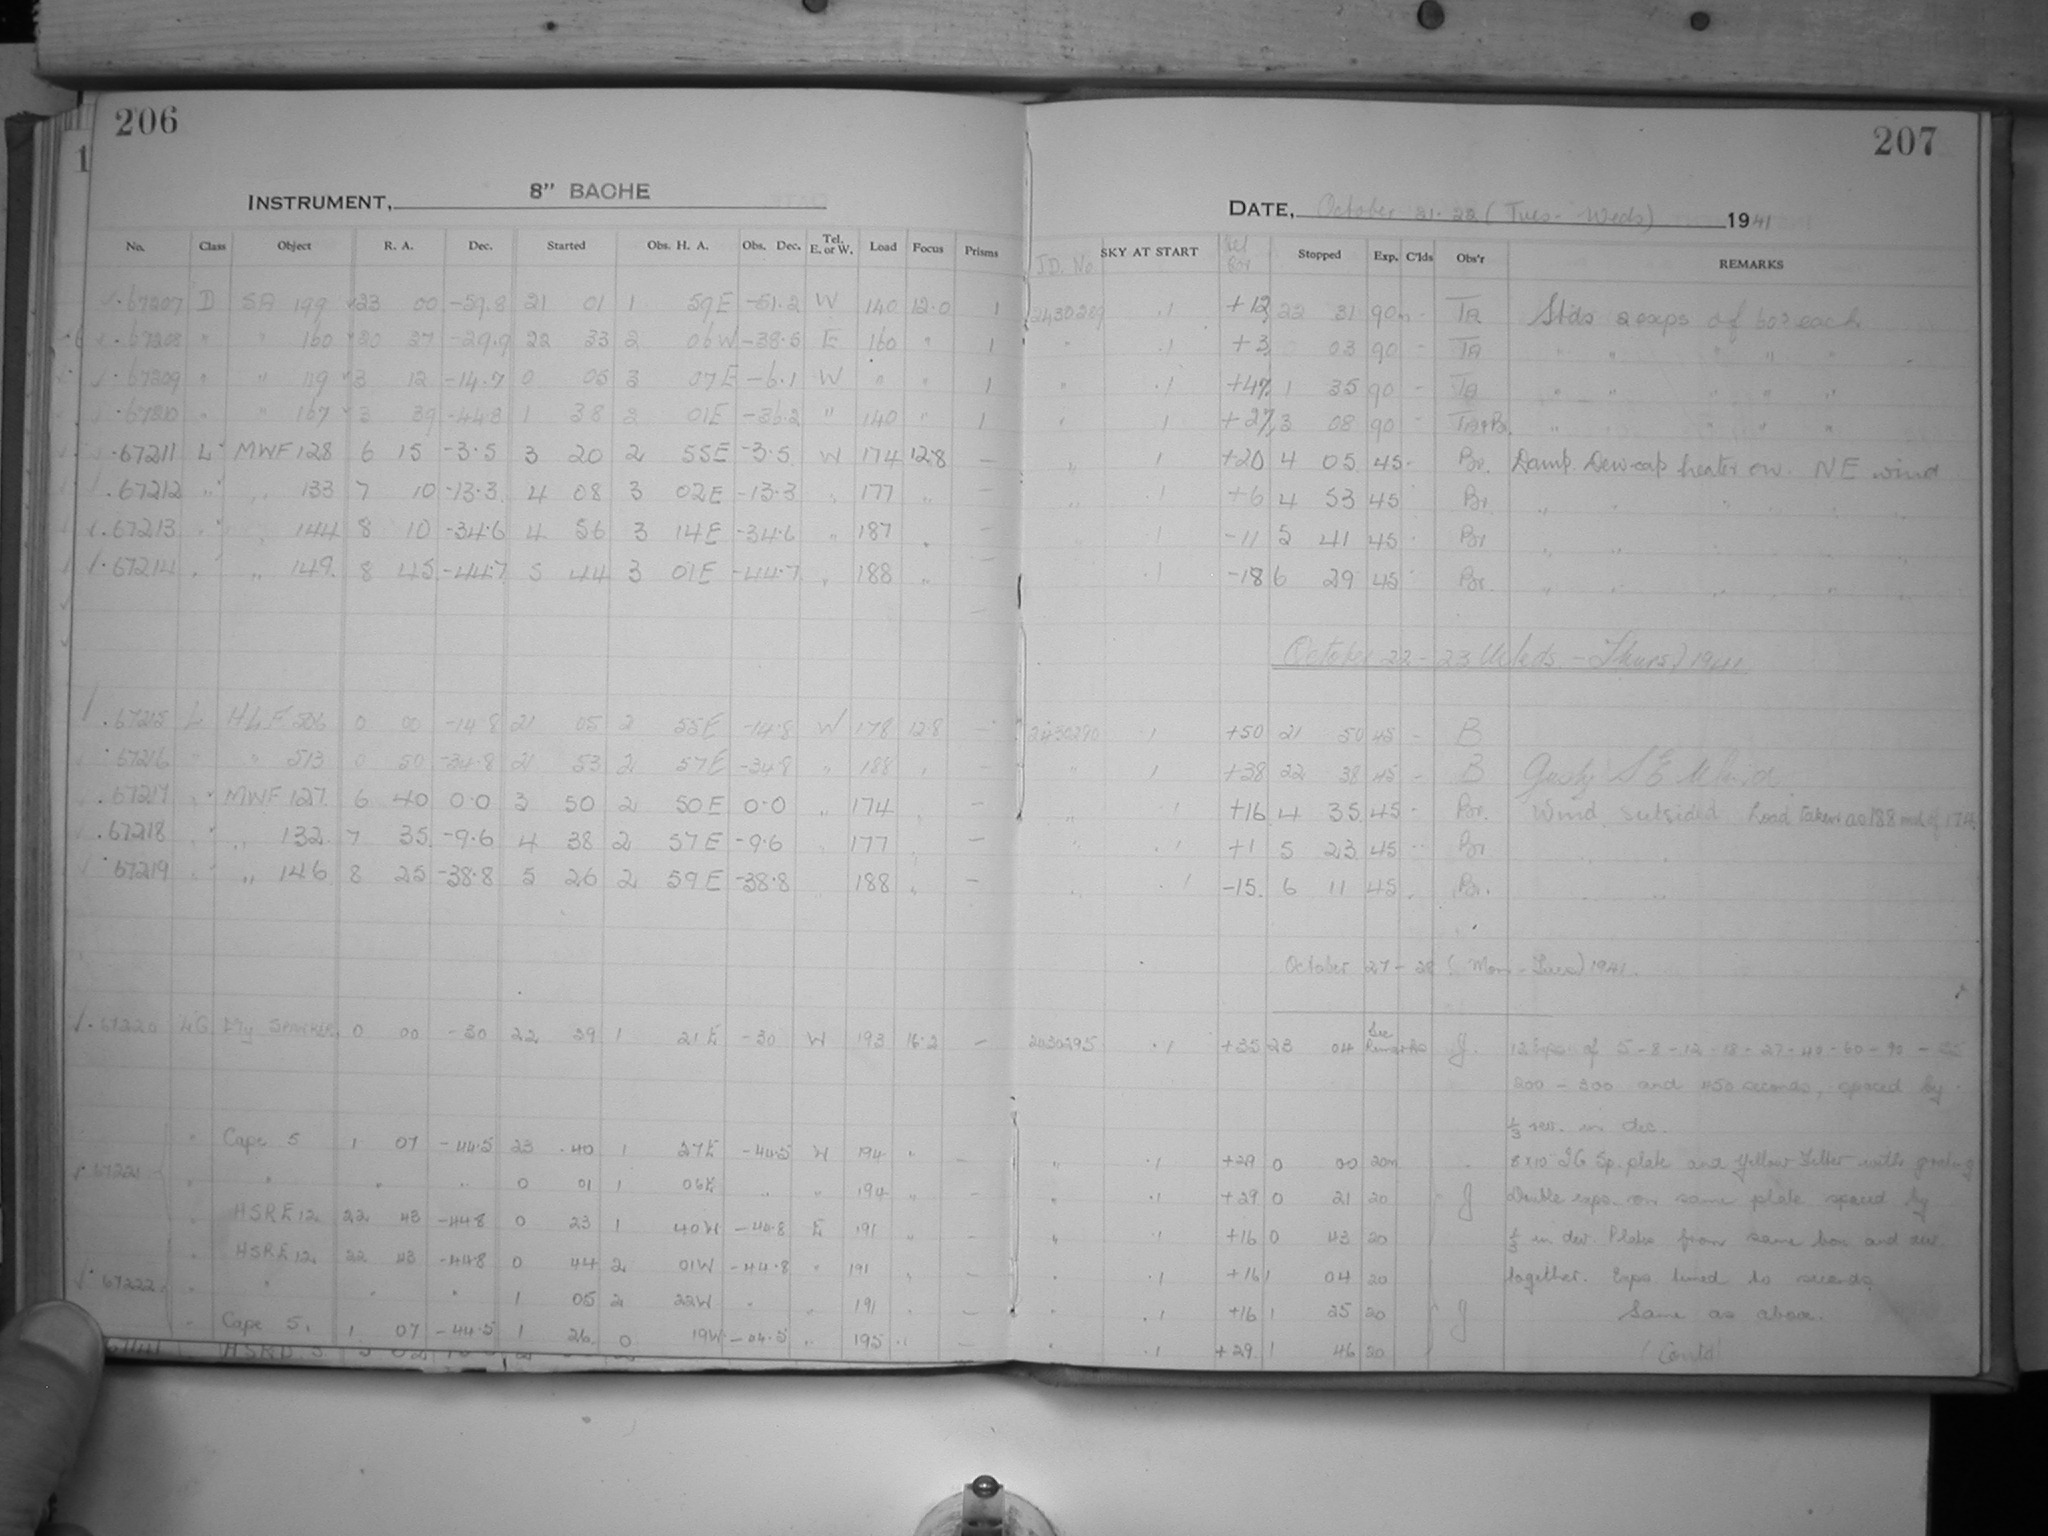 206
207
INSTRUMENT, 8" BACHE
DATE, October 21-22 (Tues - Weds) 1941
No. Class Object R. A. Dec. Started Obs. H. A. Obs. Dec. Tel. E. or W. Load Focus Prisms J.D. No SKY AT START Stopped Exp. C'lds Obs'r REMARKS
67207 D SA 199 23 00 -59.8 21 01 1 59E -61.2 W 140 12.0 1 2430289 .1 +12 22 31 90m - TA Stds 2 exps of 60s each
67208 " " 160 20 27 -29.9 22 33 2 06W -38.5 E 160 " 1 " .1 +3 0 03 90 - TA " " " " "
67209 " " 119 3 12 -14.7 0 05 3 07E -6.1 W " " 1 " .1 +47 1 35 90 - TA " " " " "
67210 " " 167 3 39 -44.8 1 38 2 01E -36.2 " 140 " 1 " 1 +27 3 08 90 " " " " "
67211 L MWF 128 6 15 -3.5 3 20 2 55E -3.5 W 174 12.8 - " 1 +20 4 05 45 - Br. Damp. Dew-cap heater on. NE wind
67212 " " 133 7 10 -13.3 4 08 3 02E -13.3 " 177 " - " .1 +6 4 53 45 Br. " " " " "
67213 " 144 8 10 -34.6 4 56 3 14E -34.6 " 187 " - " .1 -11 5 41 45 Br " " " " "
67214 " " 149 8 45 -44.7 5 44 3 01E -44.7 " 188 " .1 -18 6 29 45 Br. " " " " "
October 22-23 Weds - Thurs) 1941
67215 L HLF 506 0 00 -14.8 21 05 2 55E -14.8 W 178 12.8 - 2430290 .1 +50 21 50 45 - B
67216 " " 513 0 50 -34.8 21 53 2 57E -34.8 " 188 " - " 1 +38 22 38 45 - B Gusty S E Wind
67217 " MWF 127 6 40 0.0 3 50 2 50E 0.0 " 174 " - " .1 +16 4 35 45 - Br. Wind subsided. Load taken as 188 inst. of 174
67218 " " 132 7 35 -9.6 4 38 2 57E -9.6 " 177 " - " .1 +1 5 23 45 Br " "
67219 " " 146 8 25 -38.8 5 26 2 59E -38.8 188 " - " .1 -15 6 11 45 Br. " "
October 27-28 (Mon - Tues) 1941.
67220 0 00 -30 22 29 1 21E -30 W 193 16.2 - 2030295 .1 +35 23 04 See Remarks J. 12 Exps of 5-8-12-18-27-40-60-90-
200 - 300 and 450 seconds, spaced by
1/3 rev. in dec.
" Cape 5 1 07 -44.5 23 40 1 27E -44.5 W 194 " - " .1 +29 0 00 20m 8x10 plate and Yellow Filter with grating
67221 " " " " 0 01 1 06E " " 194 " - " .1 +29 0 21 20 J Double exps on same plate spaced by
" HSRE 12 22 43 -44.8 0 23 1 40W -44.8 E 191 " - " .1 +16 0 43 20 1/3 in dec. Plates from same box and dev.
" HSRE 12 22 43 -44.8 0 44 2 01W -44.8 " 191 " - " .1 +16 1 04 20 together. Exps timed to seconds
67222 " " " " 1 05 2 22W " " 191 " - " .1 +16 1 25 20 J Same as above.
" Cape 5. 1 07 -44.5 1 26 0 19W -44.5 " 195 " - " .1 +29 1 46 20 (Contd